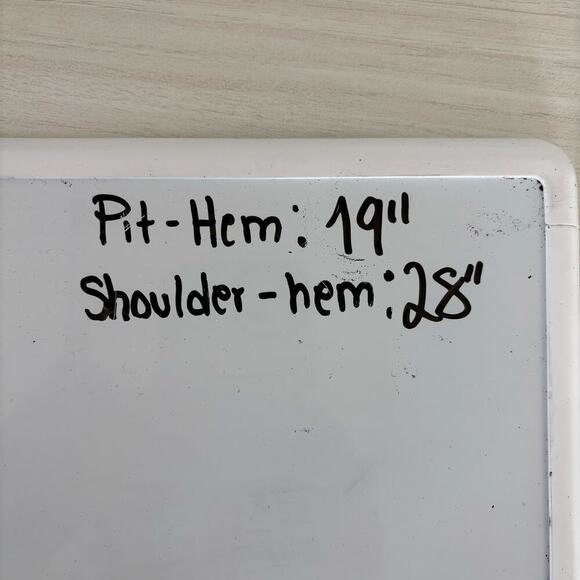 Pit-Hem: 19"
Shoulder-hem: 28"